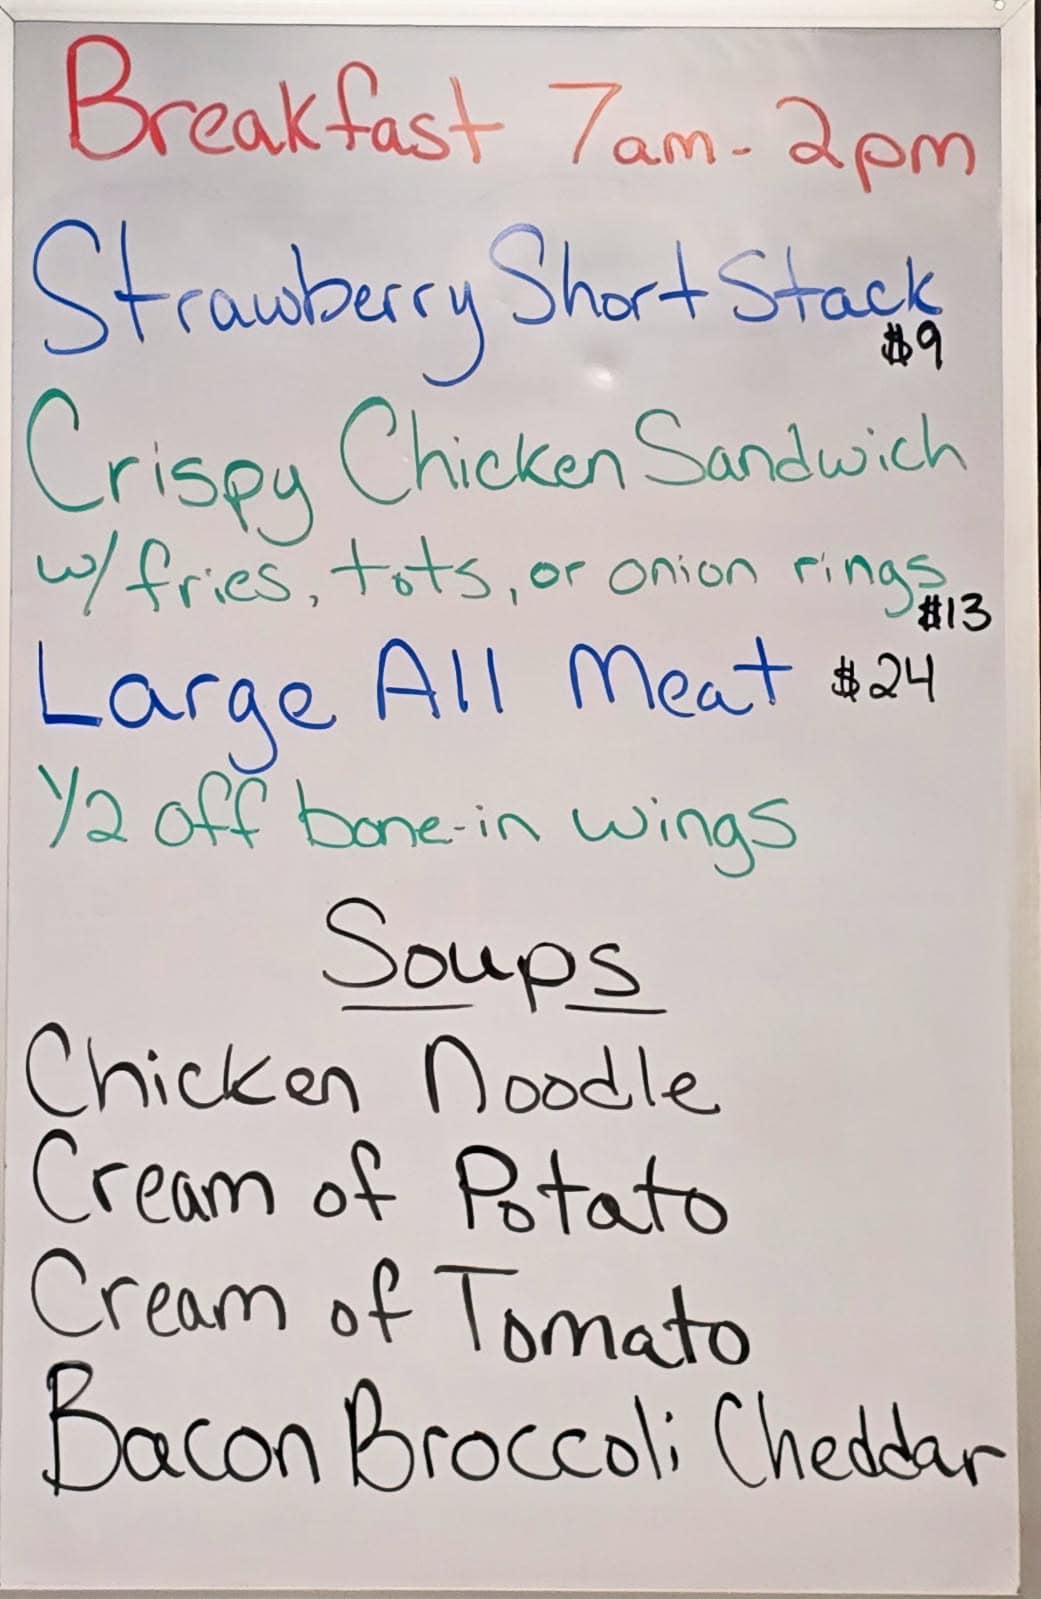 Breakfast 7am-2pm
Strawberry Short Stack
$9
Crispy Chicken Sandwich
w/ fries, tots, or onion rings
$13
Large All Meat $24
1/2 off bone-in wings
Soups
Chicken Noodle
Cream of Potato
Cream of Tomato
Bacon Broccoli Cheddar